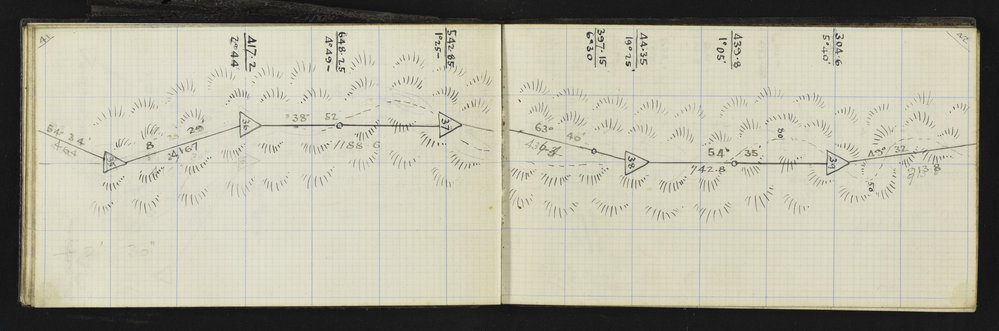 41
417·2
2°44
648·25
4°49
542·85
1°25
54° 34'
464
35
8
29
2467
36
38'
52
1188 6
37
42
397·15
6°30
44·35
19°25'
439·8
1°05'
304·6
5°40'
63°
40'
38
54° 35
742·8
80
39
49° 37
913
50
80